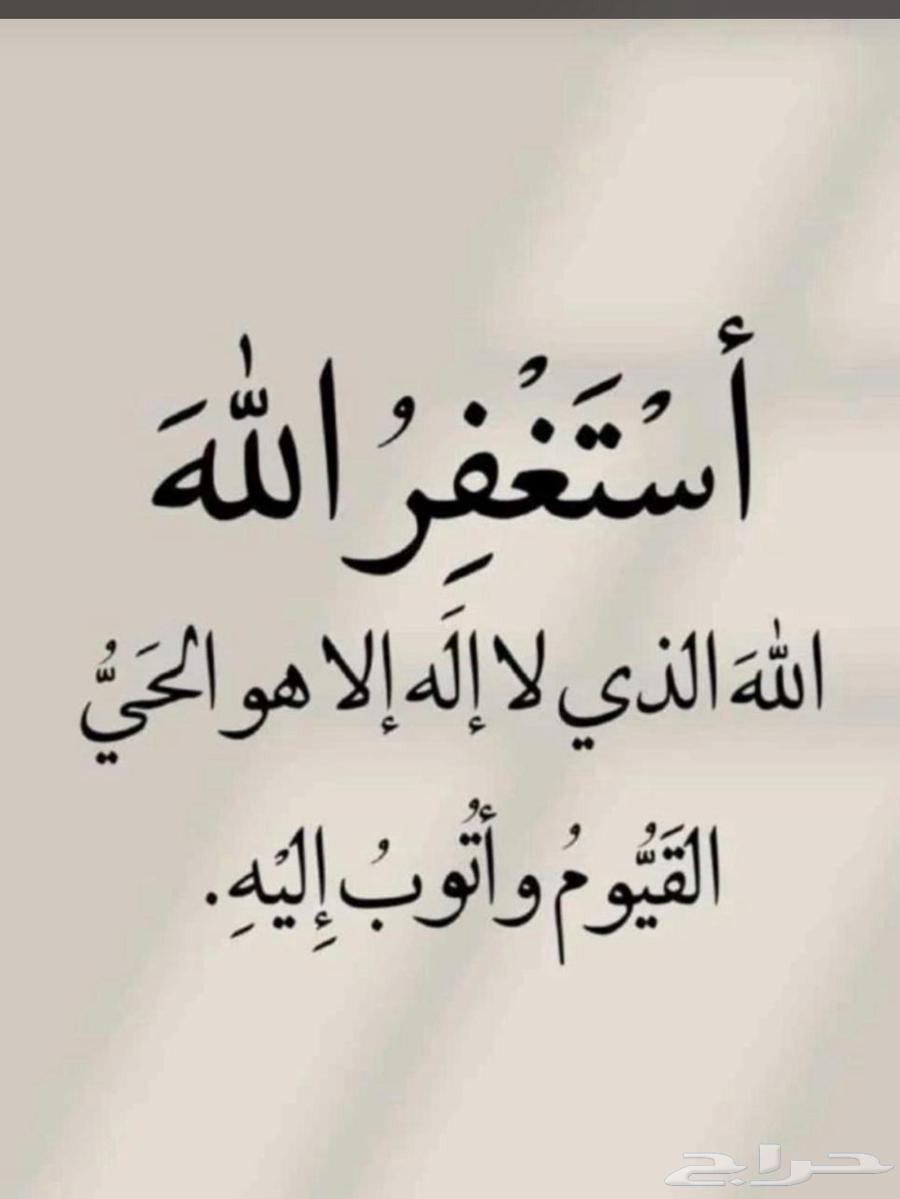 أسْتَغْفِرُ اللّٰهَ
اللّٰهَ الذي لا إلَه إلا هو الحَيُّ
القَيُّومُ و أتُوبُ إِليْهِ.
حراج